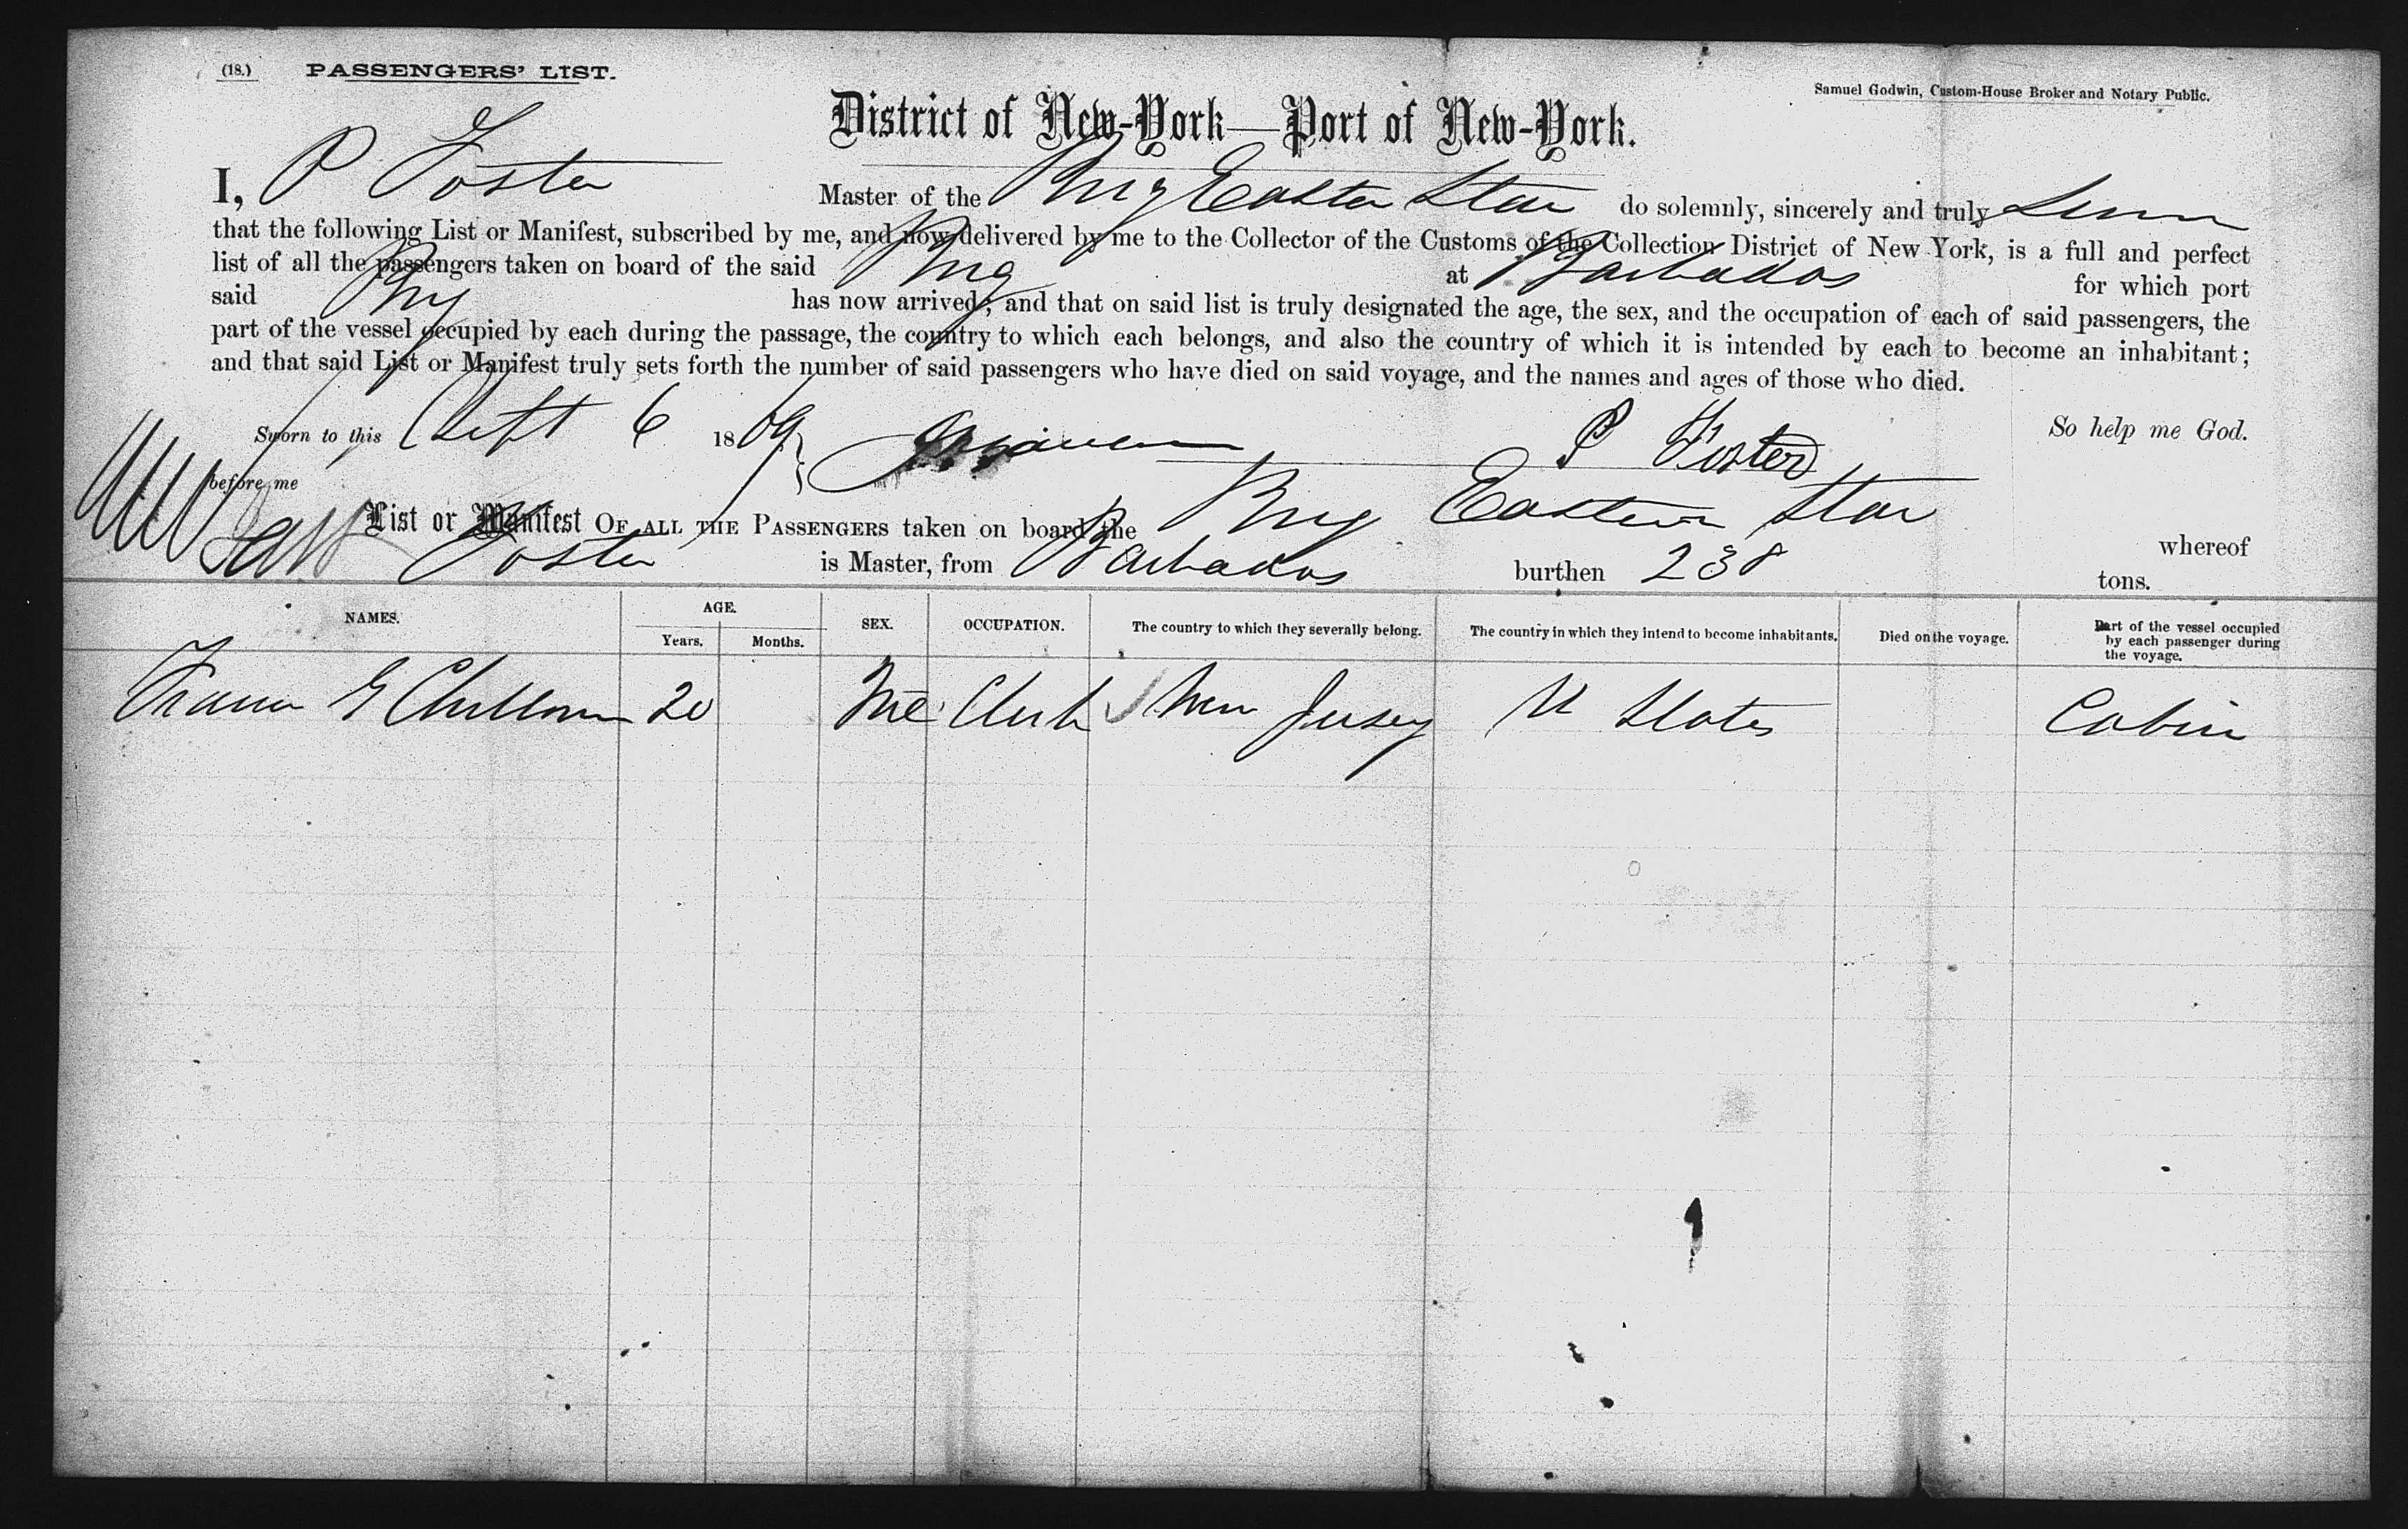 (18.) PASSENGERS' LIST.
Samuel Godwin, Custom-House Broker and Notary Public.
District of New-York—Port of New-York.
I, P Foster Master of the Brig Eastern Star do solemnly, sincerely and truly
that the following List or Manifest, subscribed by me, and now delivered by me to the Collector of the Customs of the Collection District of New York, is a full and perfect
list of all the passengers taken on board of the said Brig at Barbados for which port
said Brig has now arrived; and that on said list is truly designated the age, the sex, and the occupation of each of said passengers, the
part of the vessel occupied by each during the passage, the country to which each belongs, and also the country of which it is intended by each to become an inhabitant;
and that said List or Manifest truly sets forth the number of said passengers who have died on said voyage, and the names and ages of those who died.
Sworn to this Sept 6 1869 P Foster So help me God.
before me
List or Manifest OF ALL THE PASSENGERS taken on board the Brig Eastern Star whereof
Foster is Master, from Barbados burthen 238 tons.
NAMES. AGE. Years. Months. SEX. OCCUPATION. The country to which they severally belong. The country in which they intend to become inhabitants. Died on the voyage. Part of the vessel occupied by each passenger during the voyage.
20 Clerk New Jersey U States Cabin